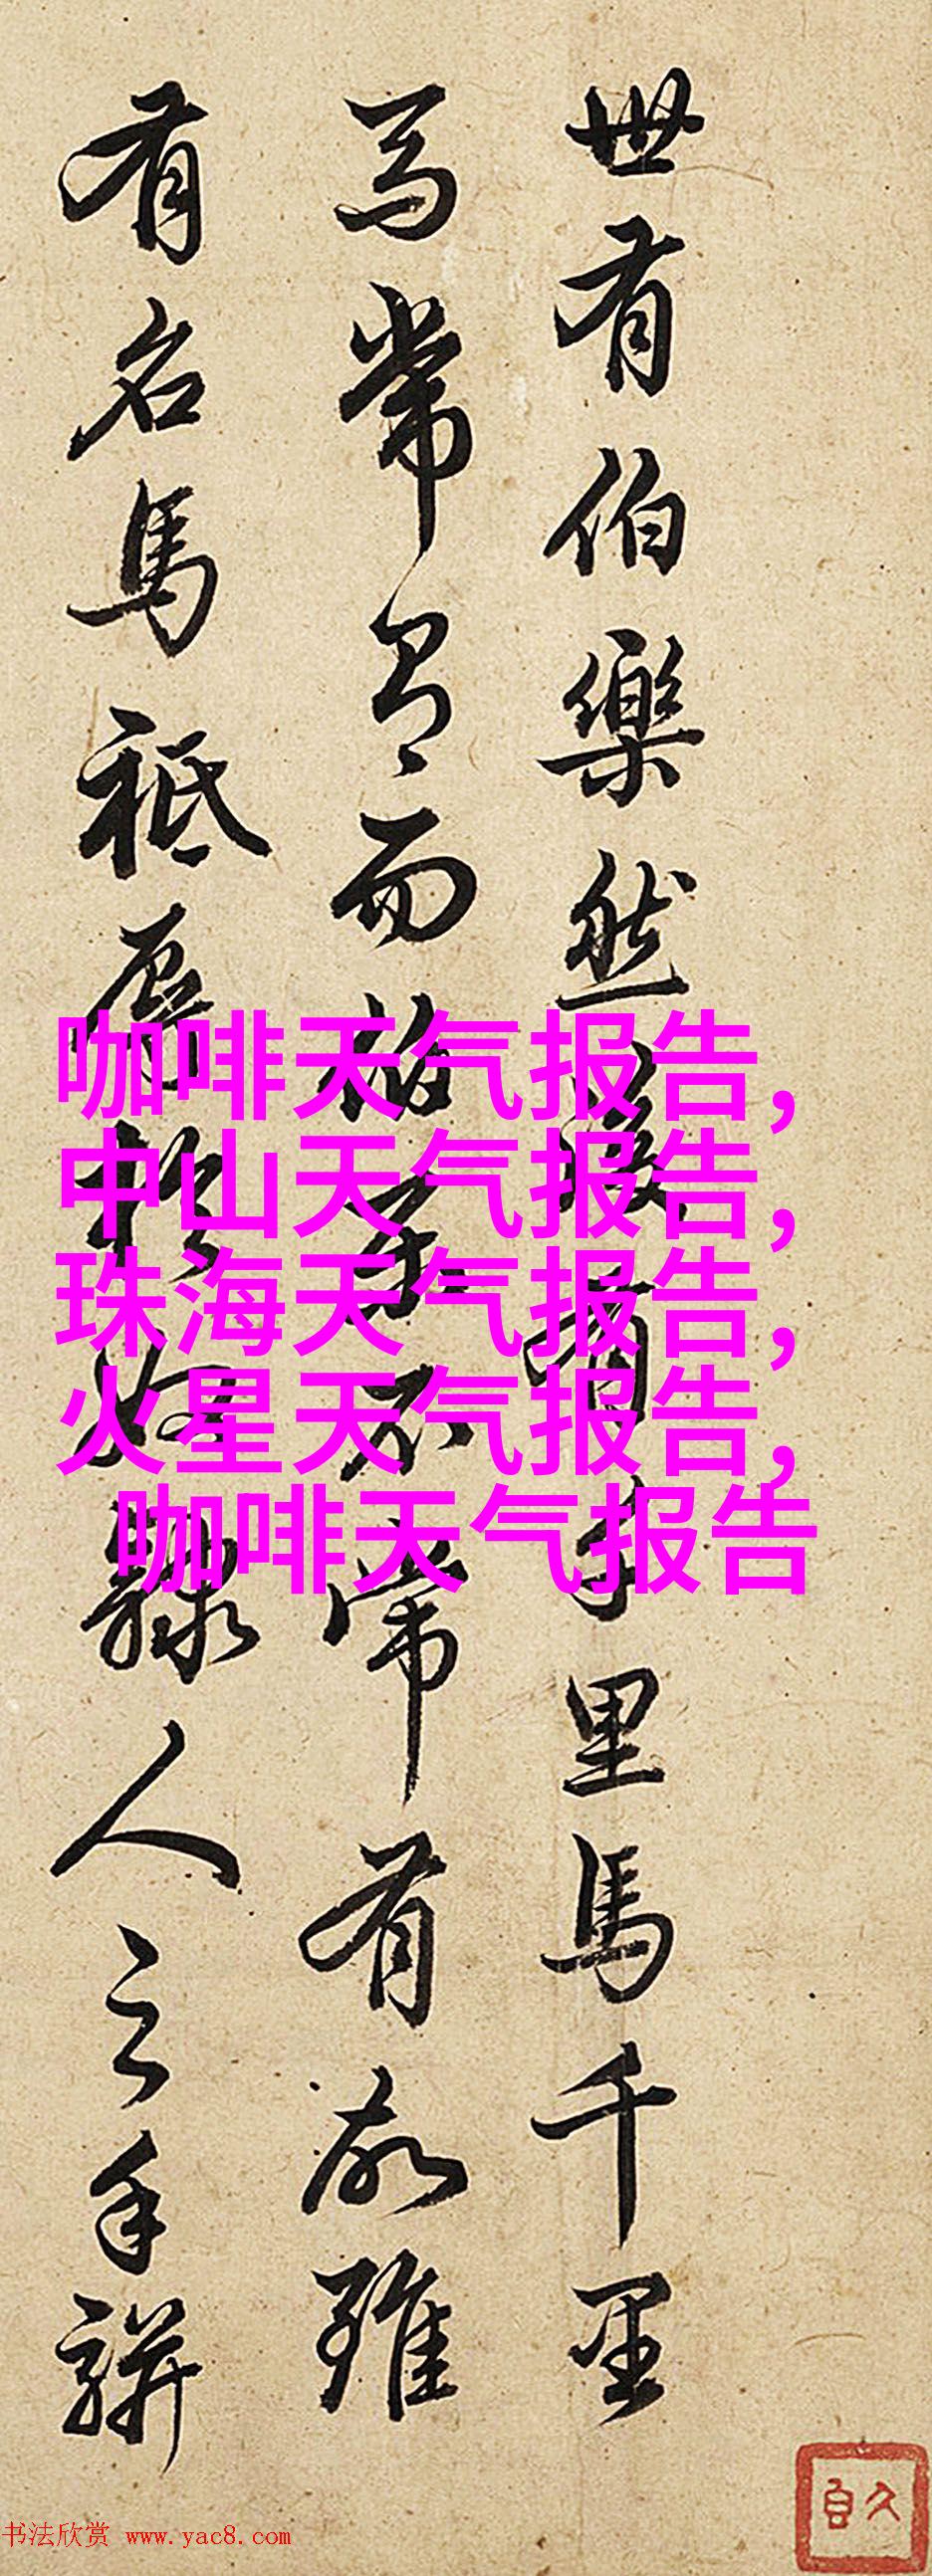 世有伯樂然後有千里馬千里
馬常有而伯樂不常有故雖
有名馬祇辱於奴隸人之手駢
咖啡天气报告，
中山天气报告，
珠海天气报告，
火星天气报告，
咖啡天气报告
书法欣赏 www.yac8.com